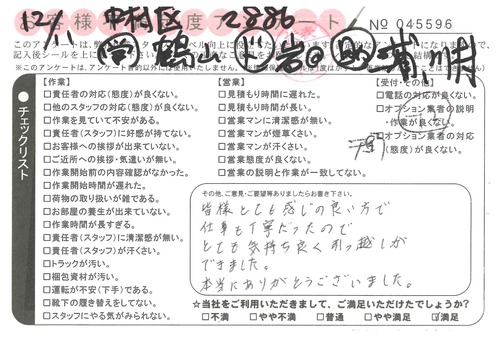 12/1 中村区 2886
お客様 度アンケート № 045596
このアンケートは、
記入後シールを上に
※このアンケートは、アンケート目的以外には使用いたしません。
チェックリスト
【作業】
□責任者の対応(態度)が良くない。
□他のスタッフの対応(態度)が良くない。
□作業を見ていて不安がある。
□責任者(スタッフ)に好感が持てない。
□お客様への挨拶が出来ていない。
□ご近所への挨拶・気遣いが無い。
□作業開始前の内容確認がなかった。
□作業開始時間が遅れた。
□荷物の取り扱いが雑である。
□お部屋の養生が出来ていない。
□作業時間が長すぎる。
□責任者(スタッフ)に清潔感が無い。
□責任者(スタッフ)が汗くさい。
□トラックが汚い。
□梱包資材が汚い。
□運転が不安(下手)である。
□靴下の履き替えをしてない。
□スタッフにやる気がみられない。
【営業】
□見積もり時間に遅れた。
□見積もり時間が長い。
□営業マンに清潔感が無い。
□営業マンが煙草くさい。
□営業マンが汗くさい。
□営業態度が良くない。
□営業の説明と作業が一致してない。
【受付・その他】
□電話の対応が良くない。
□オプション業者の説明
・作業が良くない。
□オプション業者の対応
(態度)が良くない。
その他、ご意見・ご要望等ありましたらお書き下さい。
皆様とても感じの良い方で
仕事も丁寧だったので
とても気持ち良く引っ越しが
できました。
本当にありがとうございました。
☆当社をご利用いただきまして、ご満足いただけたでしょうか?
□不満 □やや不満 □普通 □やや満足 ☑満足